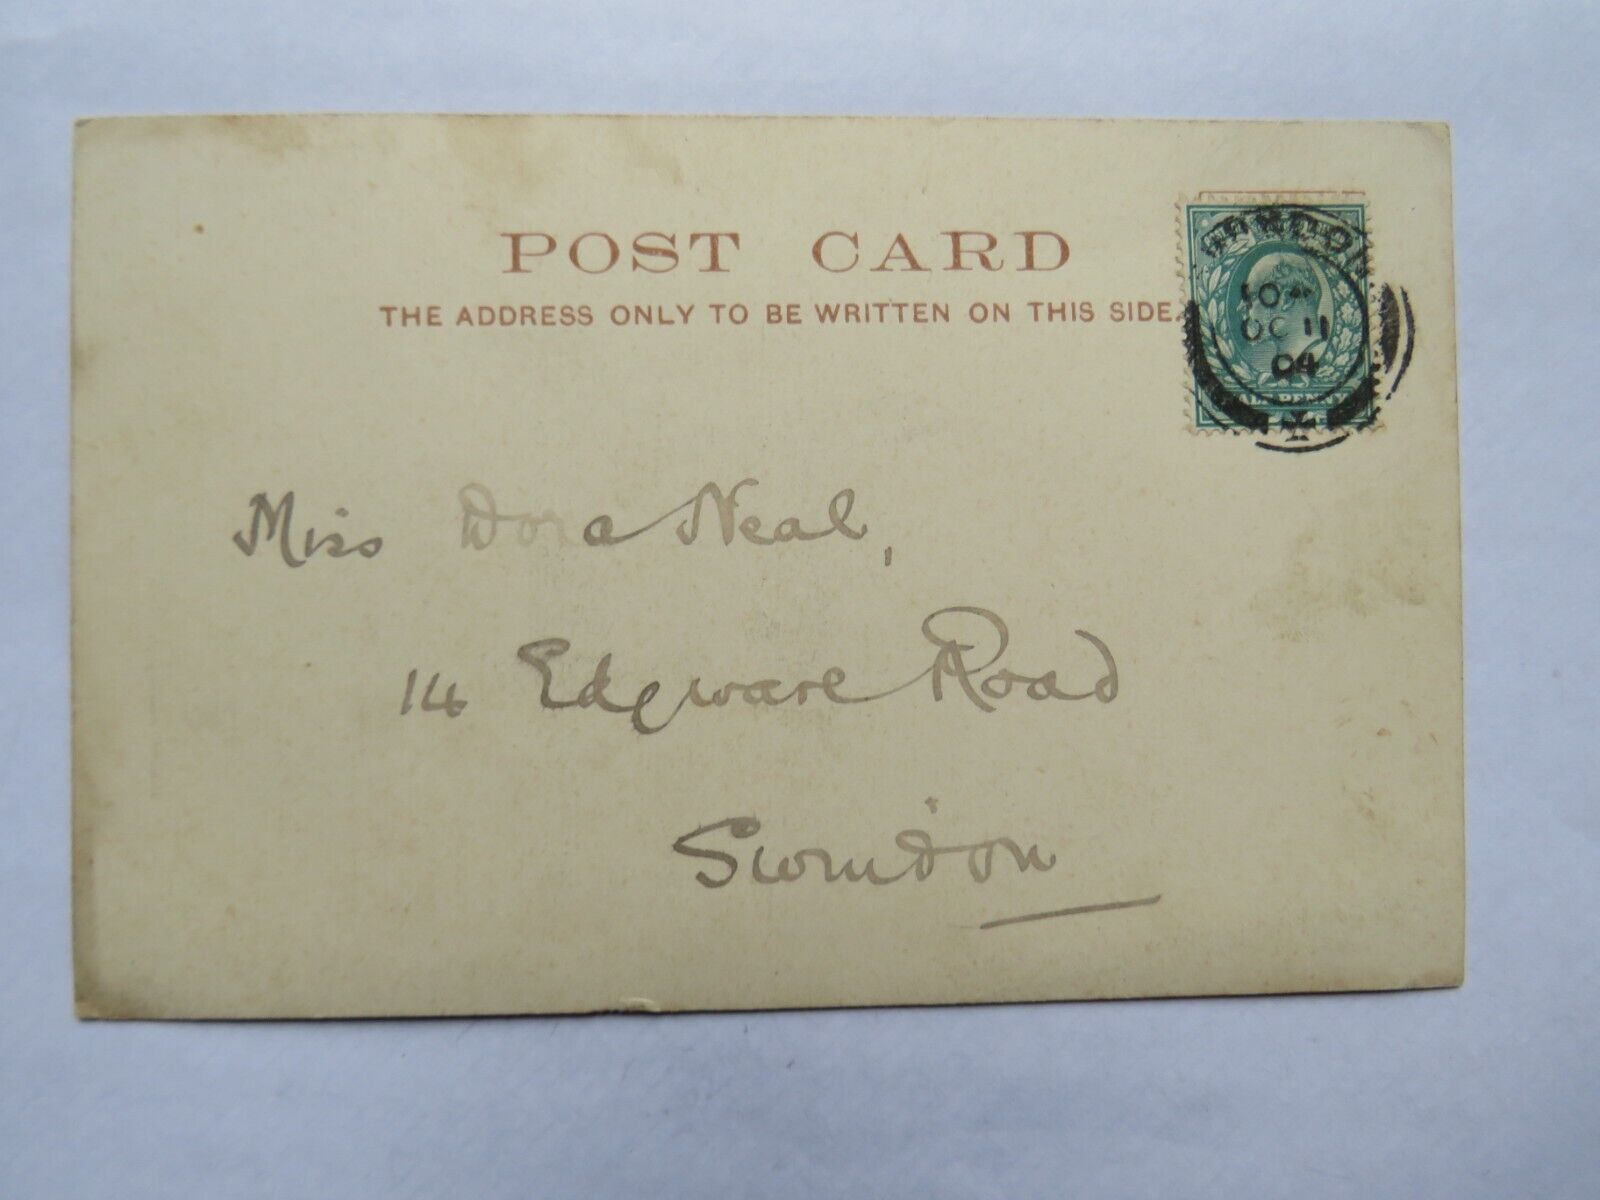 POST CARD
THE ADDRESS ONLY TO BE WRITTEN ON THIS SIDE.
LONDON
OC 11
04
HALFPENNY
Miss Dora Neal,
14 Edgware Road
Swindon